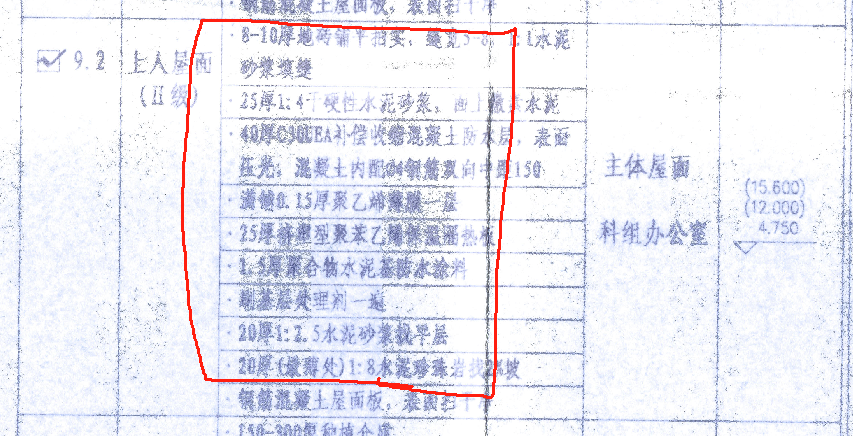 钢筋混凝土屋面板，表面扫干净
9.2 上人屋面
(II级)
8-10厚地砖铺平拍实，缝宽5-8，1:1水泥
砂浆填缝
25厚1:4干硬性水泥砂浆，面上撒素水泥
40厚C30UEA补偿收缩混凝土防水层，表面
压光，混凝土内配 钢筋双向中距150
满铺0.15厚聚乙烯薄膜一层
25厚挤塑型聚苯乙烯保温隔热板
1.5厚聚合物水泥基防水涂料
刷基层处理剂一遍
20厚1:2.5水泥砂浆找平层
20厚(最薄处)1:8水泥珍珠岩找2%坡
钢筋混凝土屋面板，表面扫干净
主体屋面
科组办公室
(15.600)
(12.000)
4.750